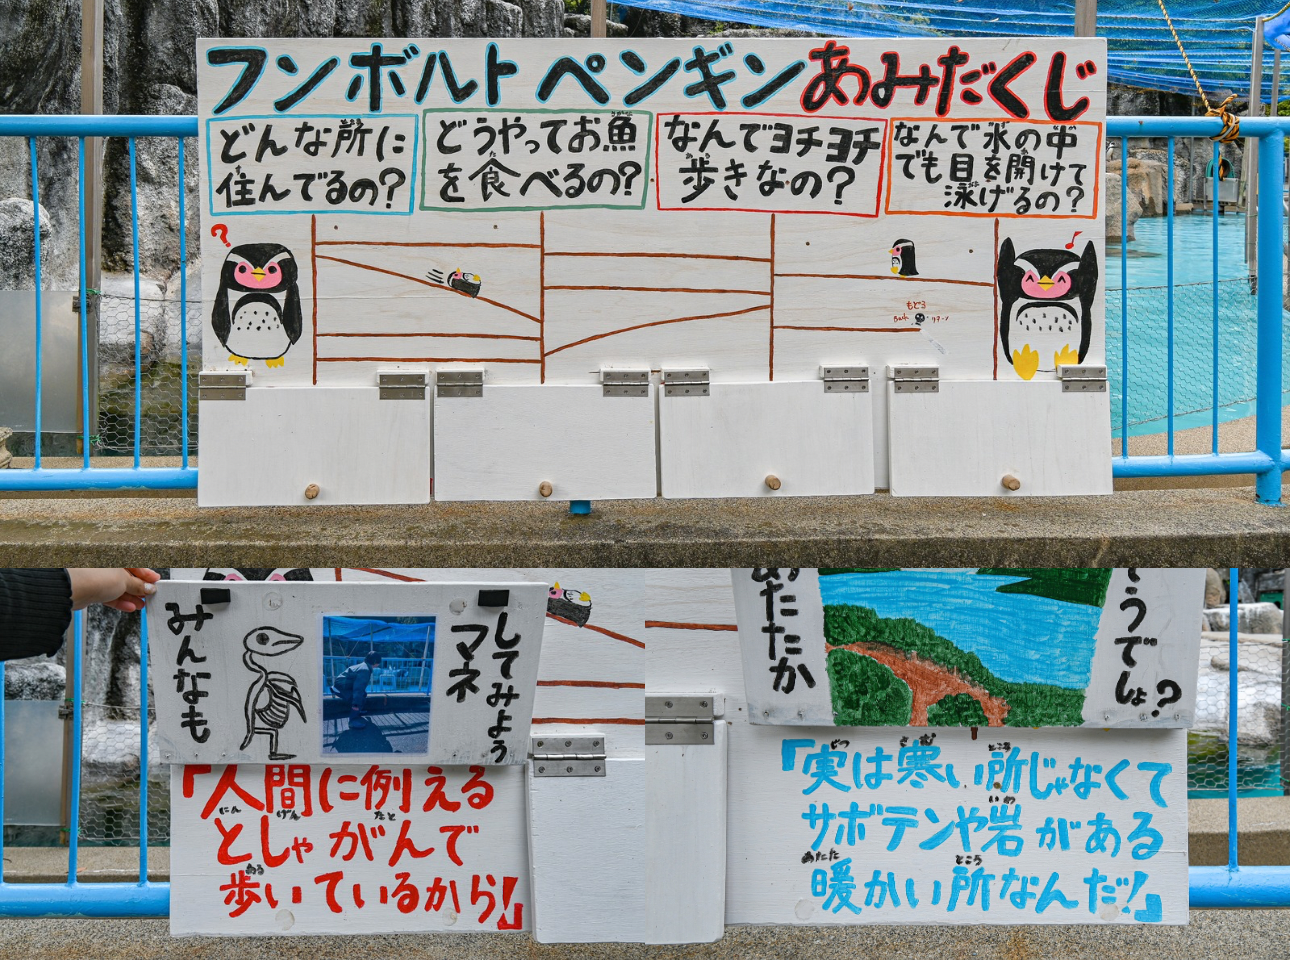 フンボルトペンギンあみだくじ
どんな所に
住んでるの?
どうやってお魚
を食べるの?
なんでヨチヨチ
歩きなの?
なんで水の中
でも目を開けて
泳げるの?
?
もどる
Back
リターン
みんなも
マネ
してみよう
「人間に例える
としゃがんで
歩いているから!」
あたたか
うでしょ?
「実は寒い所じゃなくて
サボテンや岩がある
暖かい所なんだ!」